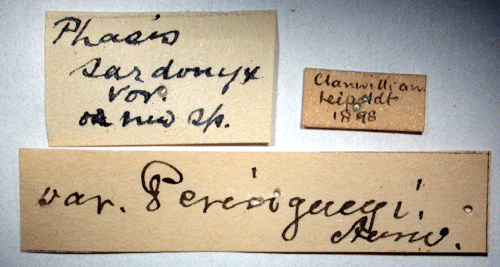 Phasis
sardonyx
var.
or new sp.
Clanwilliam
Leipoldt
1898
var. Peringueyi.
Auriv.